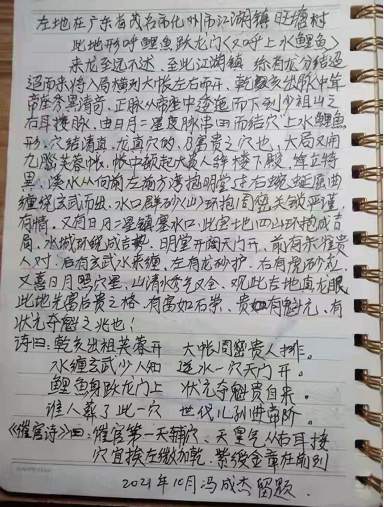 左地在广东省茂名市化州市江湖镇旺塘村
此地形呼鲤鱼跃龙门《又呼上水鲤鱼》
来龙至远不述,至此江湖镇 练有龙分结迢
迢而来将入局横列大帐左右而开、乾亥出脉中耸
帝座禾黑清奇,正脉从帝座中逶迤而下到少祖山之
右耳接脉、由日月二星度脉串田而结穴"上水鲤鱼
形、穴结清真、龙真穴的、乃富贵之穴也,大局又用
九脑芙蓉帐、帐中顿起大贵人辞楼下殿、耸立特
异、溪水从向前左前方湾抱明堂运右蜿蜒屈曲
缠绕玄武而出、水口罗砂山环抱周密关锁严谨,
有情,又有日月二星镇塞水口,此吉地四山环抱成吉
局,水城环绕成吉势、明堂开阔天门开、前有朱雀贵
人对、后有玄武水来缠、左有龙砂护、右有虎砂应,
又喜日月照穴星、山清水秀气又全、观此吉地真龙眠
此地先富后贵之格、有富如石崇、贵如有魁元、有
状元夺魁之兆也!
诗曰:乾亥出祖芙蓉开 大帐周密贵人排。
水缠玄武少人知 逆水一穴天门开。
鲤鱼身跃龙门上 状元夺魁贵自来。
谁人葬了此一穴 世代儿孙进帝阶。
《催官诗》曰:催官第一天辅穴、天皇气从右耳接
穴宜挨左微加乾,紫绶金章在前列
2021年10月冯成杰 留题.